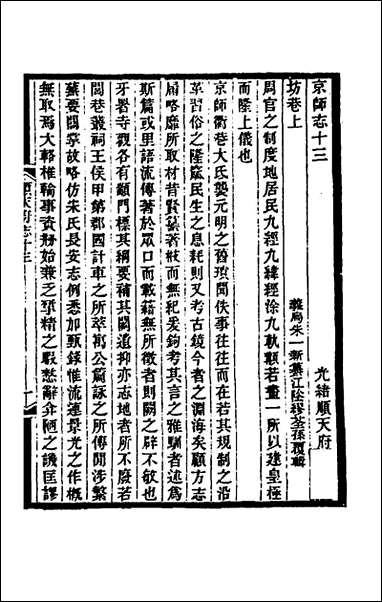 京師志十三　光緒順天府
坊巷上　義烏朱一新纂江陰繆荃孫覆輯
周官之制度地居民九經九緯經涂九軌顯若畫一所以建皇極
而隆上儀也
京師衢巷大氐襲元明之舊瑣聞佚事往往而在若其規制之沿
革習俗之隆窳民生之息耗則又考古鏡今者之淵海矣顧方志
屑略靡所取材昔賢纂著紱而無紀爰鉤考其言之雅馴者述為
斯篇或里語流傳著於眾口而載籍無所徵者則闕之辟不敏也
牙署寺觀各有顓門標其稱要補其闕遺抑亦志地者所不廢若
閭巷叢祠王侯甲第郡國計車之所萃寓公篇詠之所傳聞涉繁
蕪要關掌故略仿朱氏長安志例悉加甄錄惟流連景光之作概
無取焉大輅椎輪事資殚始兼乏硏精之暇愁辭弇陋之譏匡謬